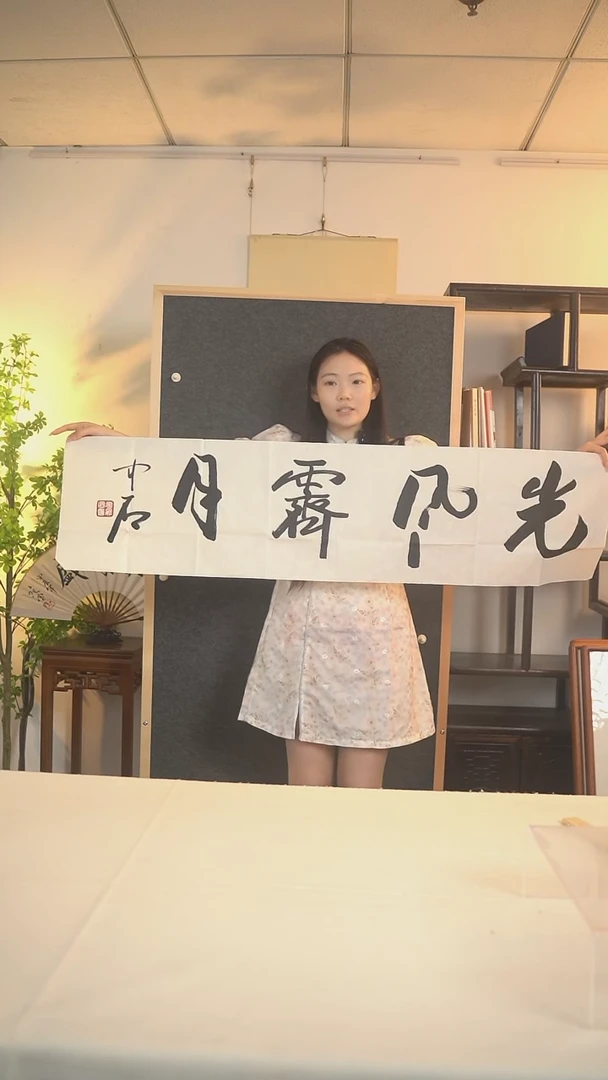 光风霁月
中石